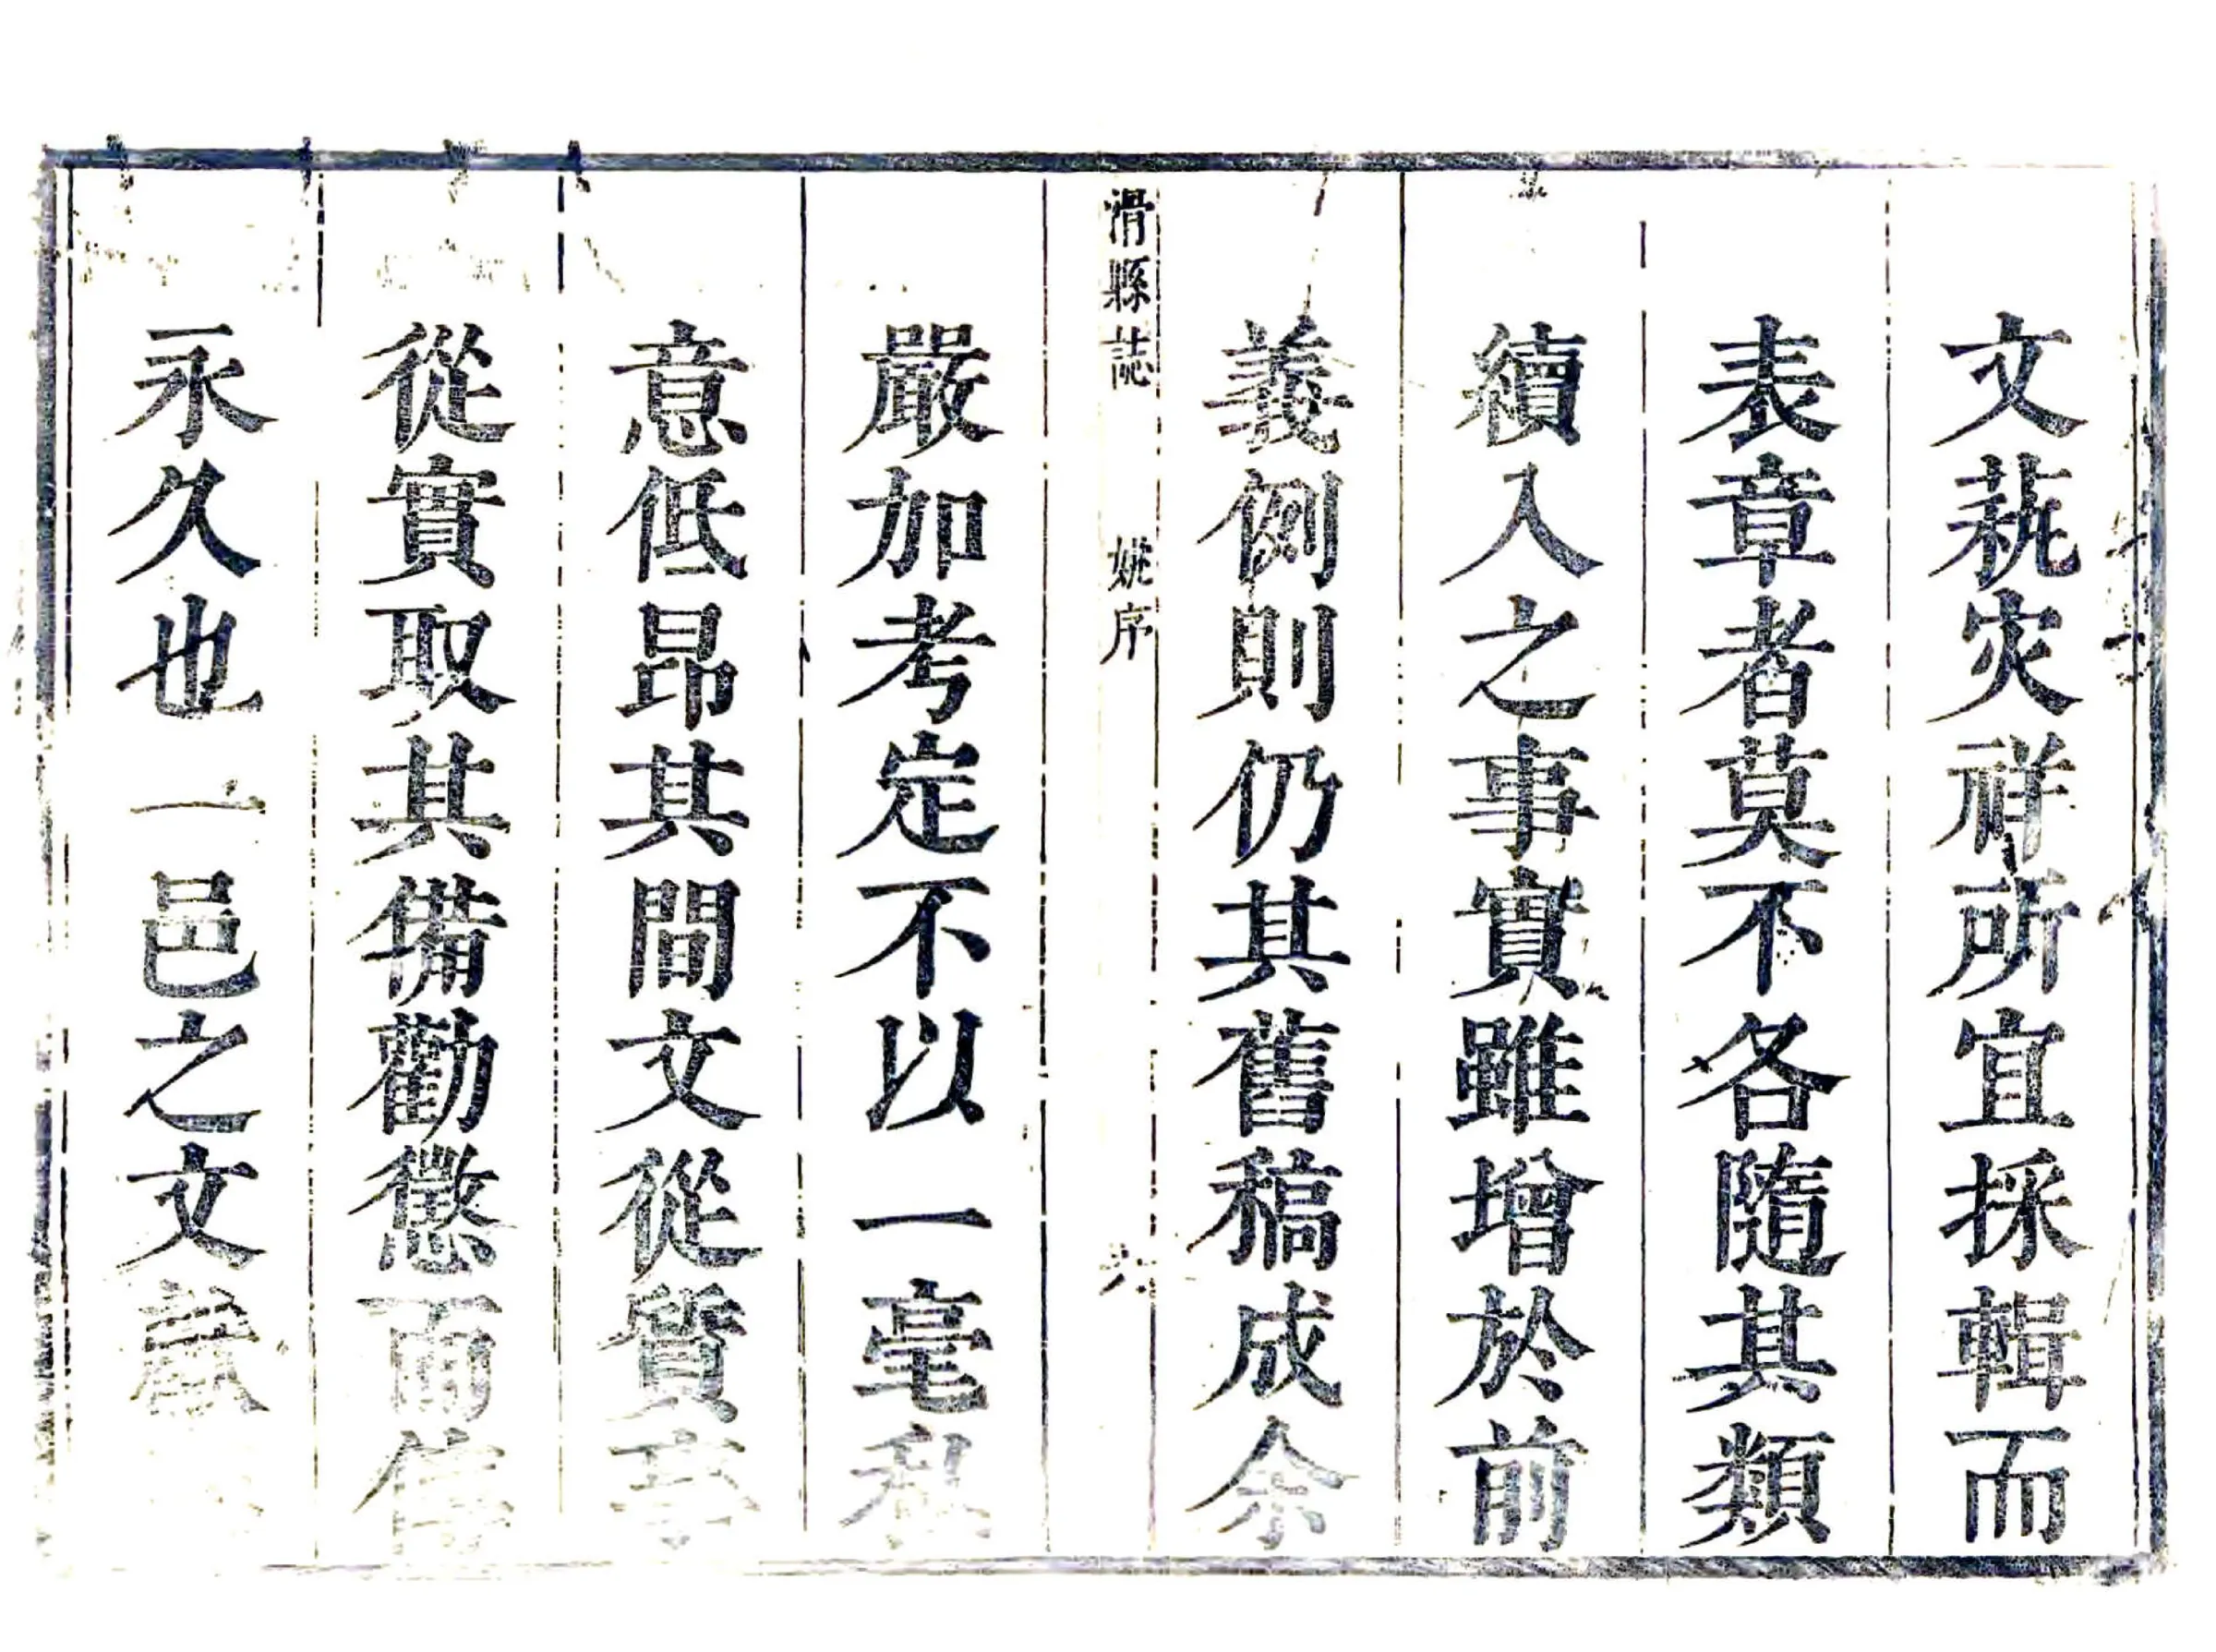 文蓺灾祥所宜採輯而
表章者莫不各隨其類
續入之事實雖增於前
義例則仍其舊稿成余
滑縣誌 姚序 六
嚴加考定不以一毫私
意低昂其間文從質事
從實取其備勸懲而傳
永久也一邑之文獻